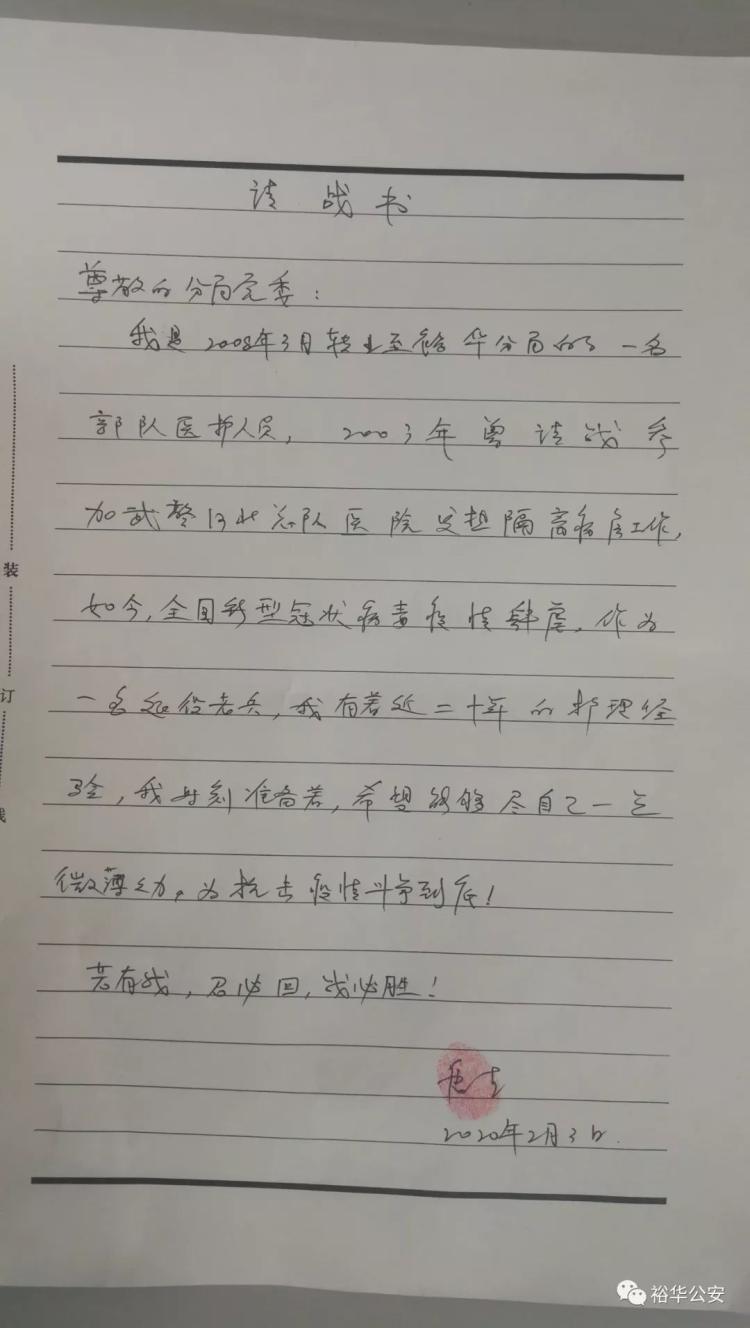 请战书
尊敬的分局党委：
我是2008年3月转业至裕华分局的一名
部队医护人员，2003年曾请战参
加武警河北总队医院发热隔离病房工作，
如今，全国新型冠状病毒疫情肆虐，作为
一名退役老兵，我有着近二十年的护理经
验，我时刻准备着，希望能够尽自己一点
微薄之力，为抗击疫情斗争到底！
若有战，召必回，战必胜！
2020年2月3日
装
订
线
裕华公安